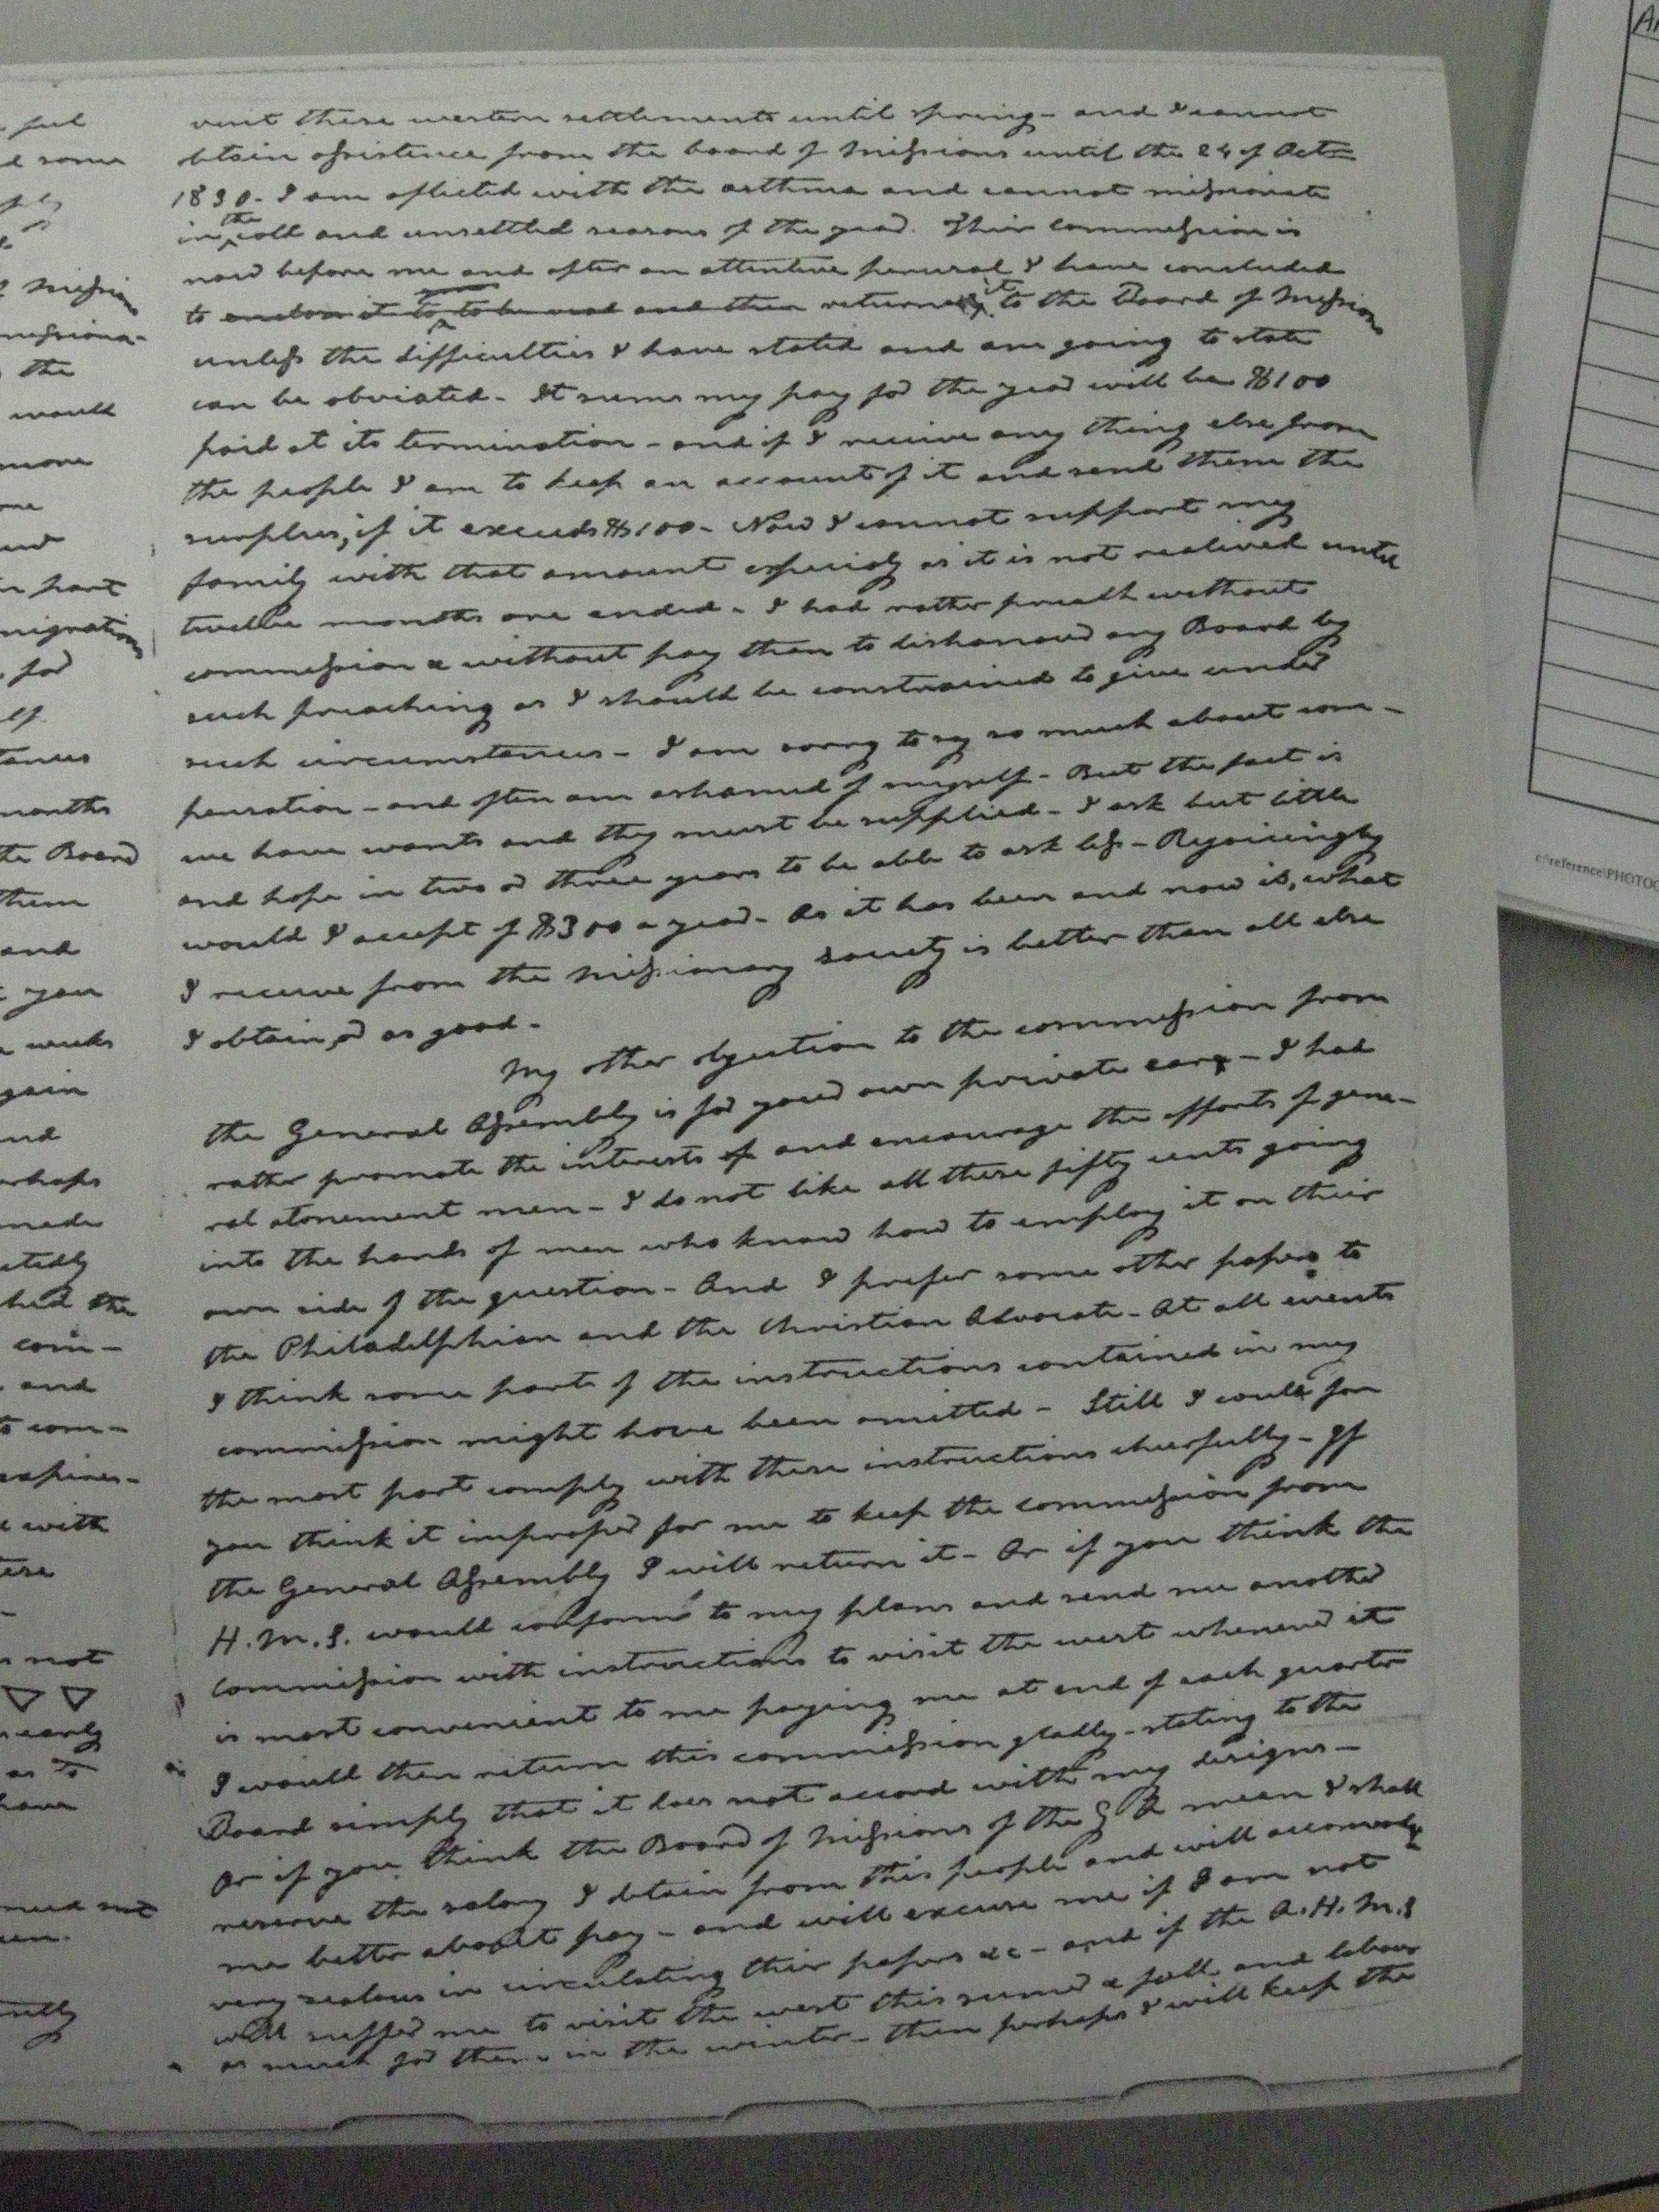 feel
some
Missions
missiona-
the
would
more
part
migrations
for
months
the Board
them
and
you
weeks
again
and
perhaps
made
the
com-
and
com-
with
not
early
as to
have
visit these western settlements until spring - and I cannot
obtain assistence from the board of Missions until the 24 of Oct
1830 - I am aflicted with the asthma and cannot missionate
in the cold and unsettled seasons of the year. Their commission is
now before me and after an attentive perusal I have concluded
to enclose it to you to be read and then return it to the Board of Missions
unless the difficulties I have stated and am going to state
can be obviated - It seems my pay for the year will be $100
paid at its termination - and if I receive any thing else from
the people I am to keep an account of it and send them the
surplus, if it exceeds $100 - Now I cannot support my
family with that amount especialy as it is not realised until
twelve months are ended - I had rather preach without
commission & without pay than to dishonour any Board by
such preaching as I should be constrained to give under
such circumstances - I am sorry to say so much about com-
pensation - and often am ashamed of myself - But the fact is
we have wants and they must be supplied - I ask but little
and hope in two or three years to be able to ask less - Rejoicingly
would I accept of $300 a year - As it has been and now is, what
I receive from the Missionary society is better than all else
I obtain, or as good -
My other objection to the commission from
the General Assembly is for your own private ear - I had
rather promote the interests of and encourage the efforts of gene-
ral atonement men - I do not like all these fifty cents going
into the hands of men who know how to employ it on their
own side of the question - And I prefer some other papers to
the Philadelphian and the Christian Advocate - At all events
I think some parts of the instructions contained in my
commission might have been omitted - Still I could for
the most part comply with these instructions cheerfully - If
you think it improper for me to keep the commission from
the General Assembly I will return it - Or if you think the
H.M.S. would conform to my plans and send me another
commission with instructions to visit the west whenever it
is most convenient to me paying me at end of each quarter
I would then return this commission gladly - stating to the
Board simply that it does not accord with my designs -
Or if you think the Board of Missions of the G A mean I shall
reserve the salary I obtain from this people and will accomodate
me better about pay - and will excuse me if I am not
very zealous in circulating their papers &c - and if the A.H.M.S
will suffer me to visit the west this sumer & fall and labour
as much for them in the winter - then perhaps I will keep the
c:\reference\PHOTOC